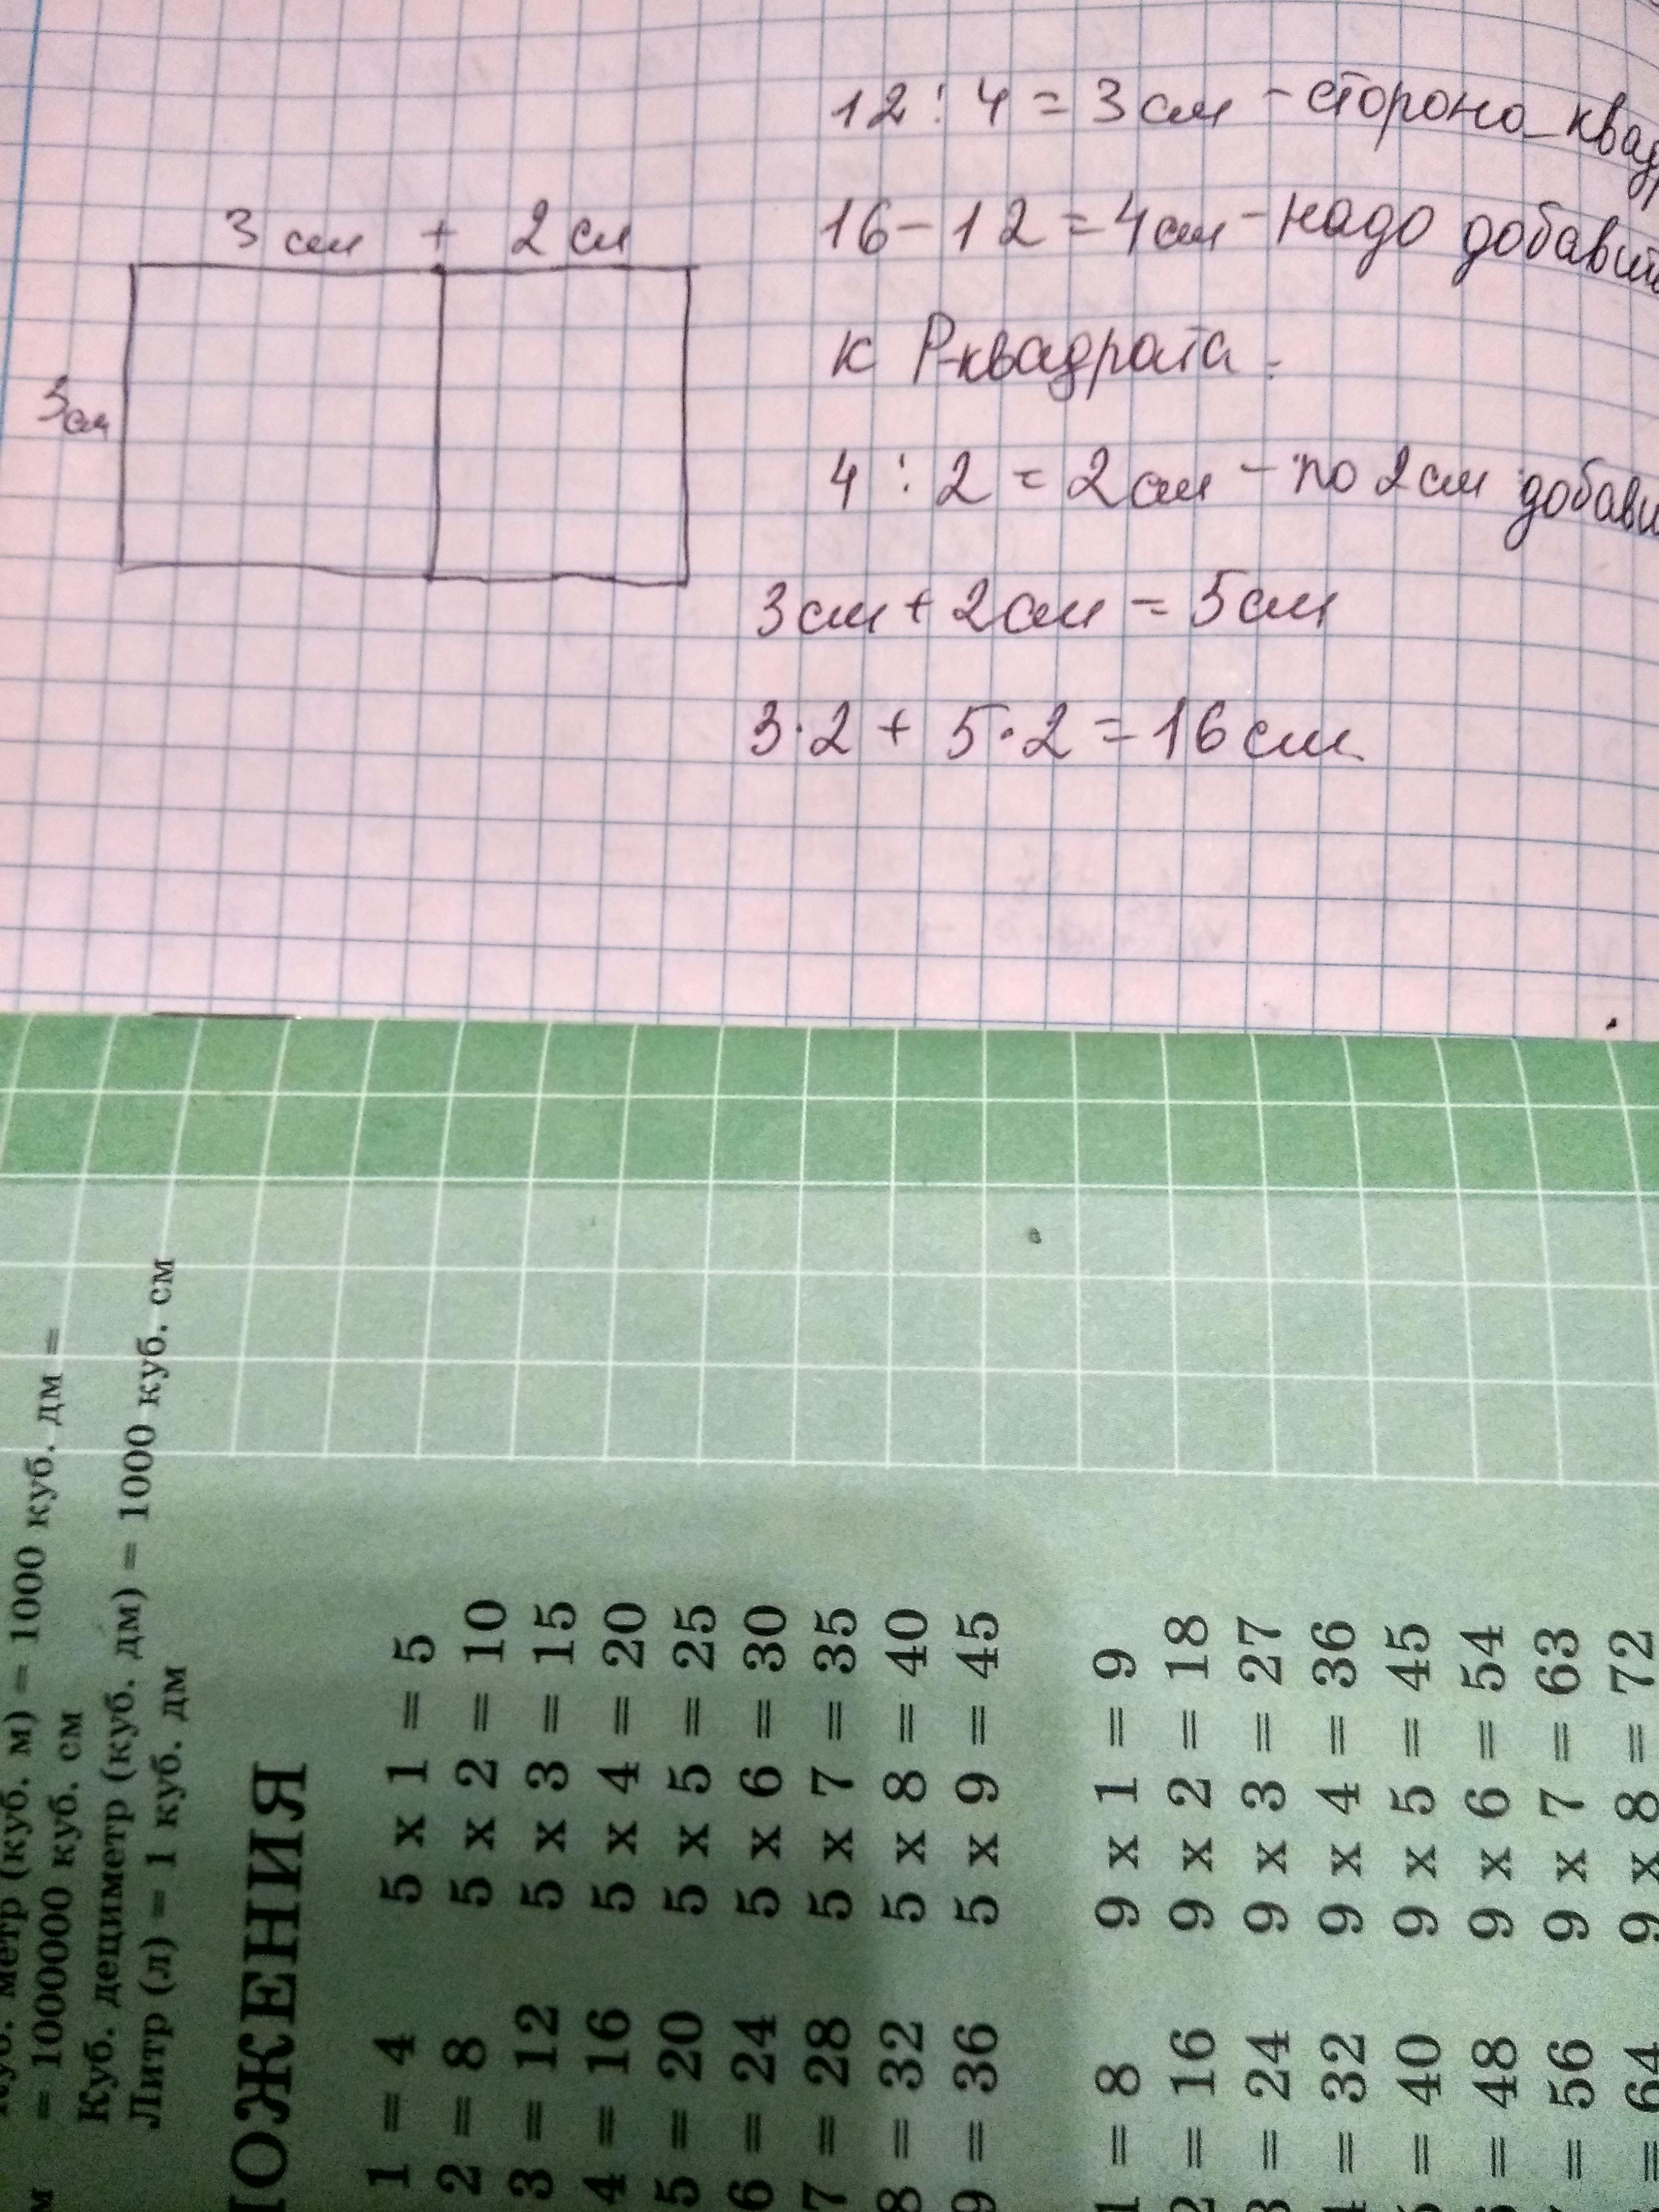 3 см + 2 см
3см
12 : 4 = 3 см - сторона квад
16 - 12 = 4см - надо добавит
к Р-квадрата.
4 : 2 = 2 см - по 2 см добави
3 см + 2 см = 5 см
3·2 + 5·2 = 16 см
метр (куб. м) = 1000 куб. дм =
= 1000000 куб. см
Куб. дециметр (куб. дм) = 1000 куб. см
Литр (л) = 1 куб. дм
ОЖЕНИЯ
1 = 4
2 = 8
3 = 12
4 = 16
5 = 20
6 = 24
7 = 28
8 = 32
9 = 36
5 x 1 = 5
5 x 2 = 10
5 x 3 = 15
5 x 4 = 20
5 x 5 = 25
5 x 6 = 30
5 x 7 = 35
5 x 8 = 40
5 x 9 = 45
1 = 8
2 = 16
3 = 24
4 = 32
5 = 40
= 48
= 56
= 64
9 x 1 = 9
9 x 2 = 18
9 x 3 = 27
9 x 4 = 36
9 x 5 = 45
9 x 6 = 54
9 x 7 = 63
9 x 8 = 72